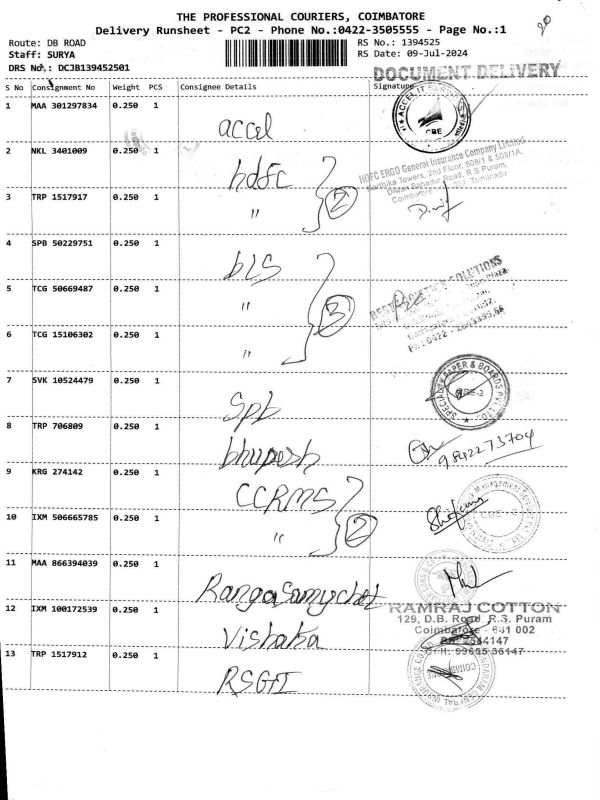 THE PROFESSIONAL COURIERS, COIMBATORE
Delivery Runsheet - PC2 - Phone No.:0422-3505555 - Page No.:1
20
Route: DB ROAD
RS No.: 1394525
Staff: SURYA
RS Date: 09-Jul-2024
DRS No.: DCJB139452501
DOCUMENT DELIVERY
S No Consignment No Weight PCS Consignee Details Signature
1 MAA 301297834 0.250 1 accel
ACCEL IT SERVICES
CBE
2 NKL 3401009 0.250 1 hdfc
HDFC ERGO General Insurance Company Limited
Karthika Towers, 2nd Floor, 508/1 & 508/1A,
Diwan Bahadur Road, R.S Puram,
Coimbatore Tamilnadu
3 TRP 1517917 0.250 1 " 2
4 SPB 50229751 0.250 1 bLS
SOLUTIONS
5 TCG 50669487 0.250 1 " 3
6 TCG 15106302 0.250 1 "
7 SVK 10524479 0.250 1 Spb
PAPER & BOARDS PVT. LTD.
CBE-2
8 TRP 706809 0.250 1 bhupesh
9842273704
9 KRG 274142 0.250 1 CCRMS
10 IXM 506665785 0.250 1 " 2
11 MAA 866394039 0.250 1 Rangasamychet
12 IXM 100172539 0.250 1 Vishaka
RAMRAJ COTTON
129, D.B. Road, R.S. Puram
Coimbatore - 641 002
PH: 2544147
13 TRP 1517912 0.250 1 RSGI